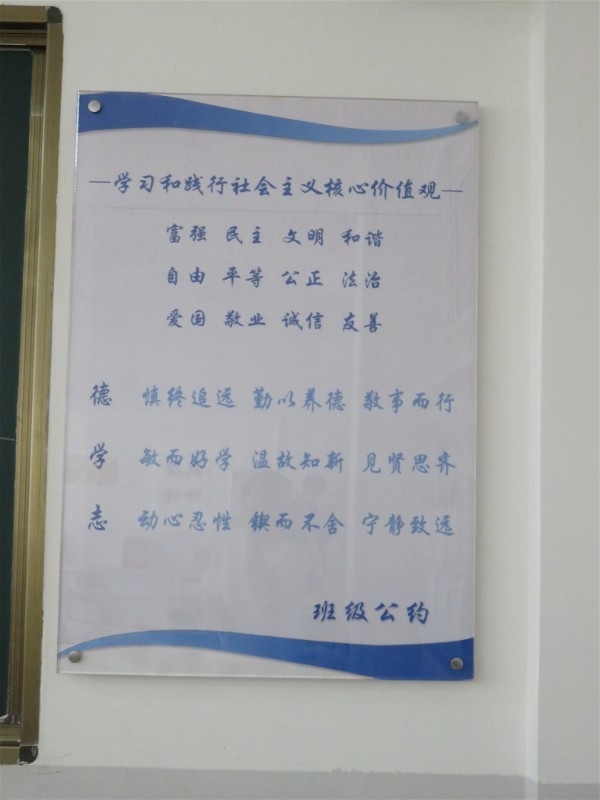 —学习和践行社会主义核心价值观—
富强 民主 文明 和谐
自由 平等 公正 法治
爱国 敬业 诚信 友善
德 慎终追远 勤以养德 敬事而行
学 敏而好学 温故知新 见贤思齐
志 动心忍性 锲而不舍 宁静致远
班级公约